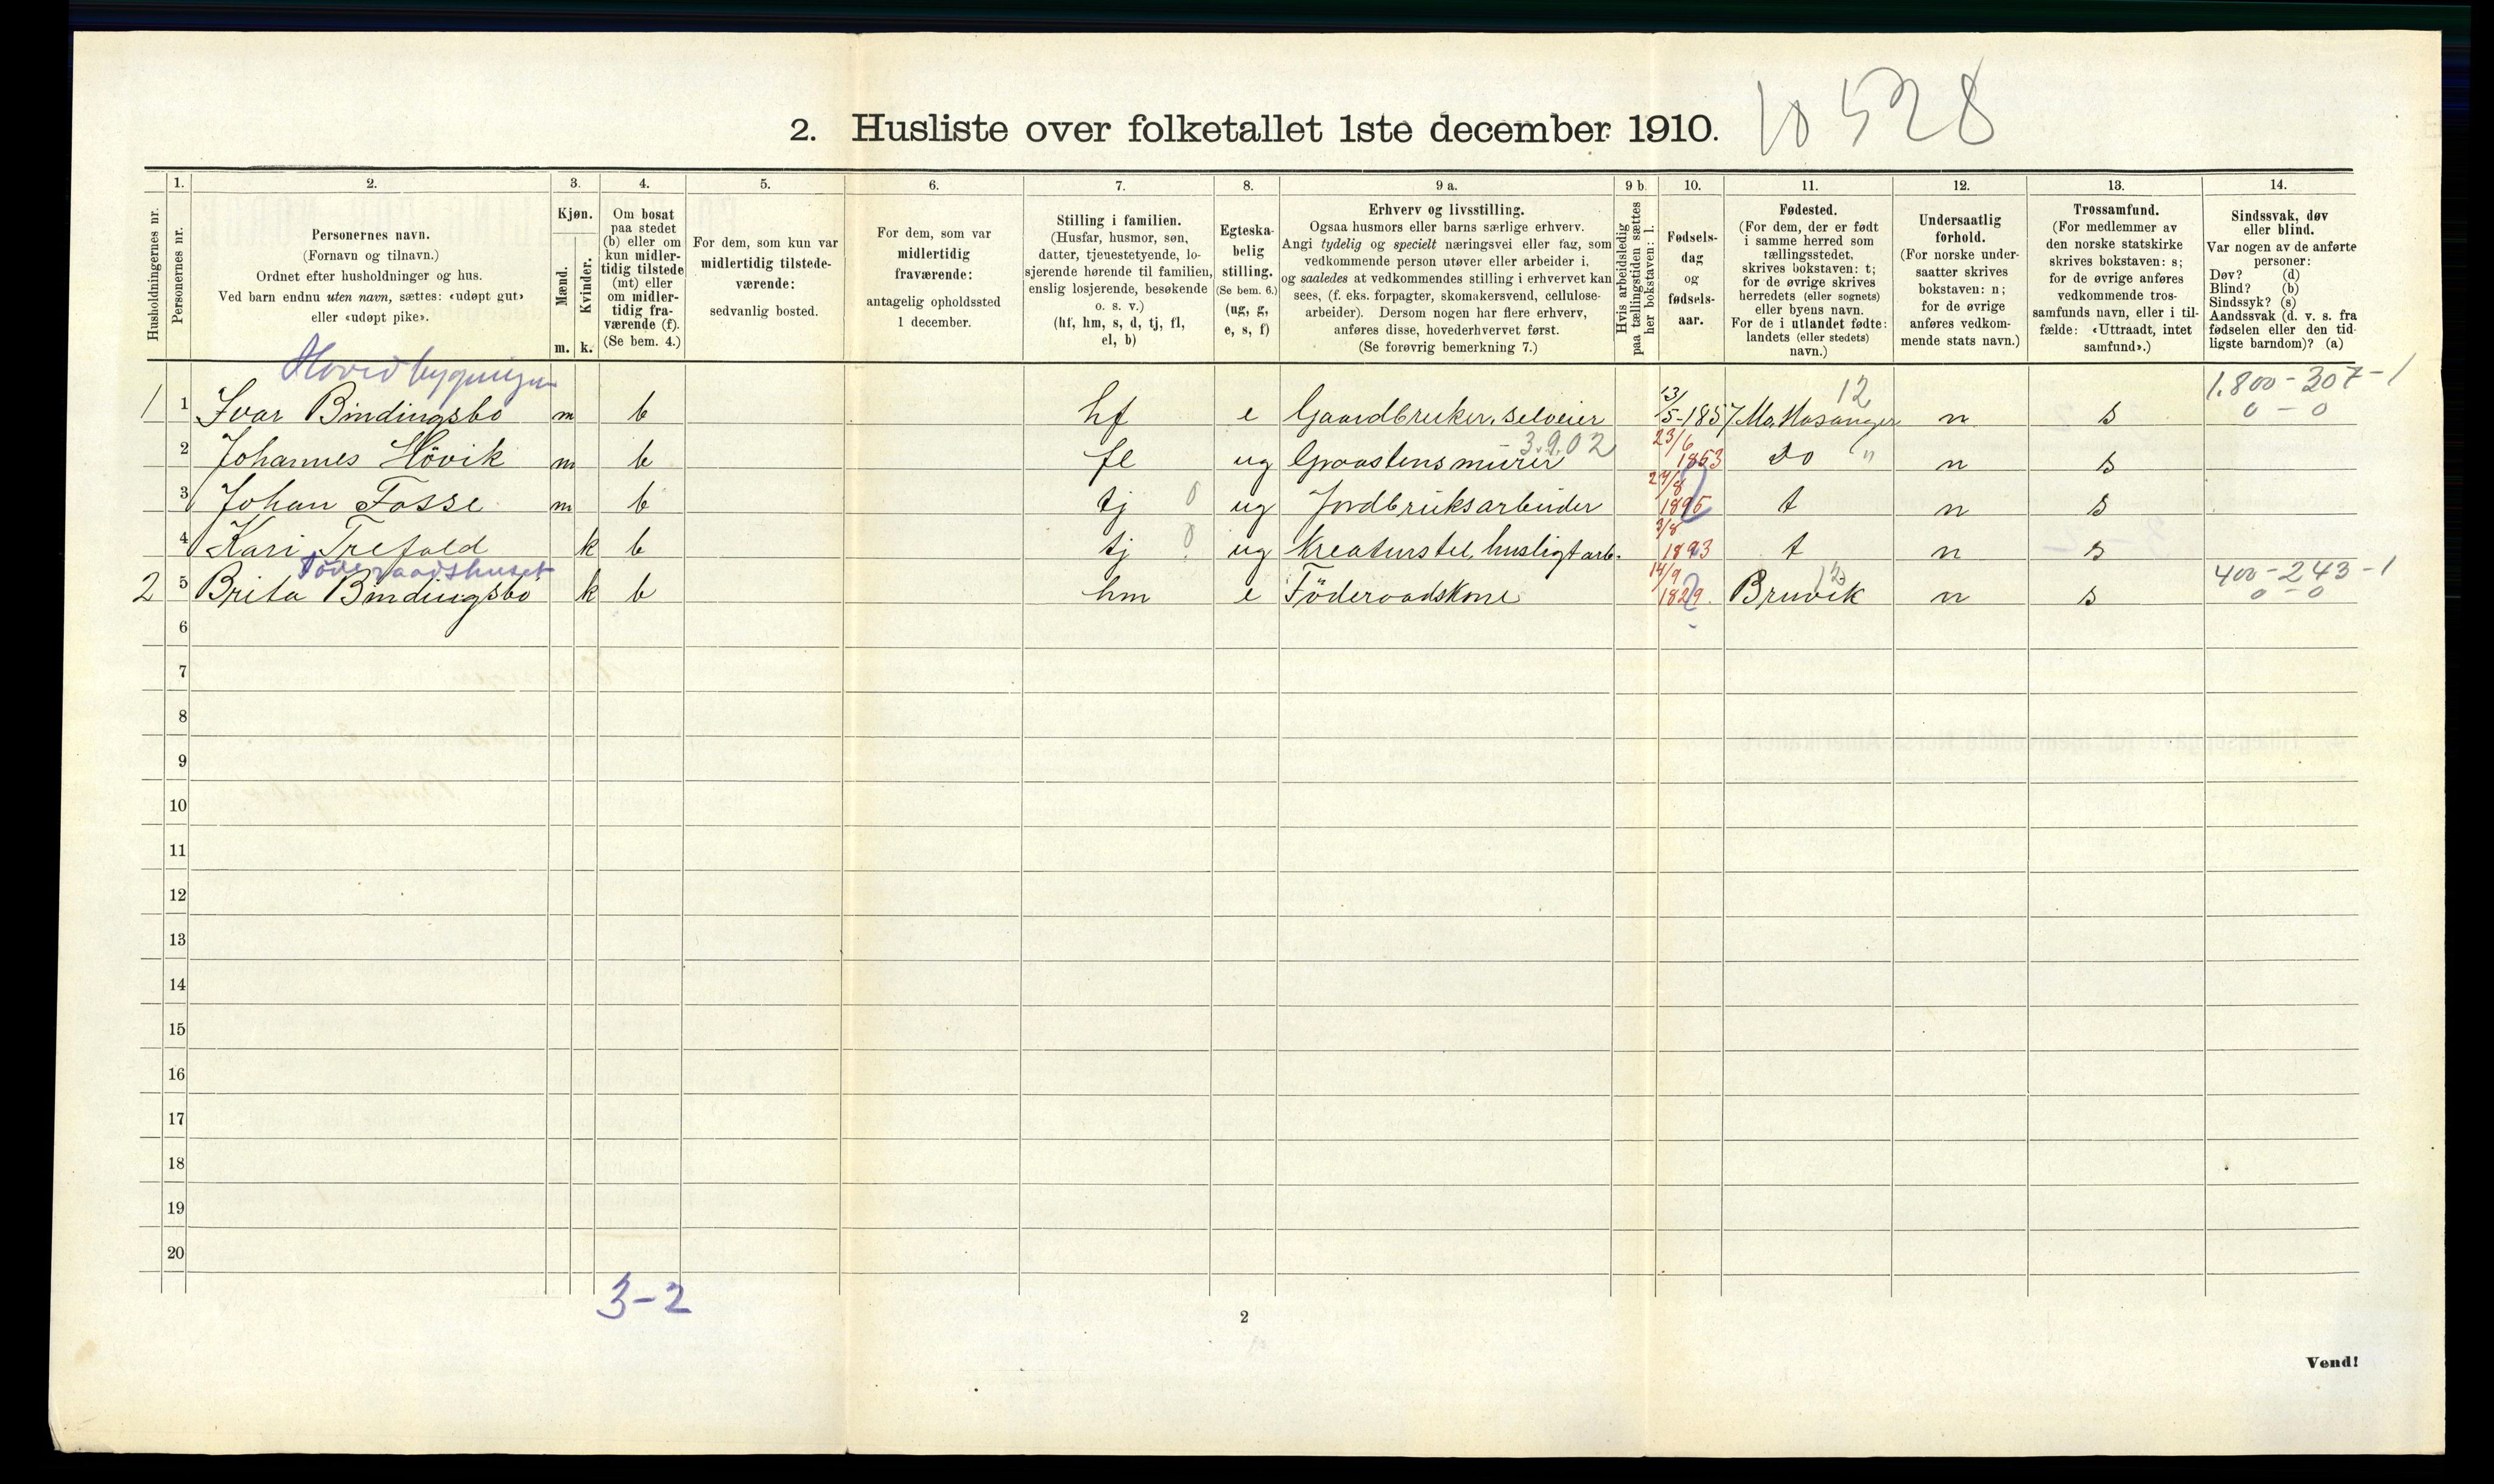 2. Husliste over folketallet 1ste december 1910. 10528
1. 2. 3. 4. 5. 6. 7. 8. 9 a. 9 b. 10. 11. 12. 13. 14.
Husholdningernes nr.
Personernes nr.
Personernes navn.
(Fornavn og tilnavn.)
Ordnet efter husholdninger og hus.
Ved barn endnu uten navn, sættes: «udøpt gut»
eller «udøpt pike».
Kjøn.
Mænd.
Kvinder.
m. k.
Om bosat
paa stedet
(b) eller om
kun midler-
tidig tilstede
(mt) eller
om midler-
tidig fra-
værende (f).
(Se bem. 4.)
For dem, som kun var
midlertidig tilstede-
værende:
sedvanlig bosted.
For dem, som var
midlertidig
fraværende:
antagelig opholdssted
1 december.
Stilling i familien.
(Husfar, husmor, søn,
datter, tjenestetyende, lo-
sjerende hørende til familien,
enslig losjerende, besøkende
o. s. v.)
(hf, hm, s, d, tj, fl,
el, b)
Egteska-
belig
stilling.
(Se bem. 6.)
(ug, g,
e, s, f)
Erhverv og livsstilling.
Ogsaa husmors eller barns særlige erhverv.
Angi tydelig og specielt næringsvei eller fag, som
vedkommende person utøver eller arbeider i,
og saaledes at vedkommendes stilling i erhvervet kan
sees, (f. eks. forpagter, skomakersvend, cellulose-
arbeider). Dersom nogen har flere erhverv,
anføres disse, hovederhvervet først.
(Se forøvrig bemerkning 7.)
Hvis arbeidsledig
paa tællingstiden sættes
her bokstaven: l.
Fødsels-
dag
og
fødsels-
aar.
Fødested.
(For dem, der er født
i samme herred som
tællingsstedet,
skrives bokstaven: t;
for de øvrige skrives
herredets (eller sognets)
eller byens navn.
For de i utlandet fødte:
landets (eller stedets)
navn.)
Undersaatlig
forhold.
(For norske under-
saatter skrives
bokstaven: n;
for de øvrige
anføres vedkom-
mende stats navn.)
Trossamfund.
(For medlemmer av
den norske statskirke
skrives bokstaven: s;
for de øvrige anføres
vedkommende tros-
samfunds navn, eller i til-
fælde: «Uttraadt, intet
samfund».)
Sindssvak, døv
eller blind.
Var nogen av de anførte
personer:
Døv? (d)
Blind? (b)
Sindssyk? (s)
Aandssvak (d. v. s. fra
fødselen eller den tid-
ligste barndom)? (a)
Hovedbygningen 12 1.800-307-1
1 1 Ivar Bindingsbo m b hf e Gaardbruker, selveier 13/5-1857 Mo, Hosanger n s 0-0
3.9.02
2 Johannes Hövik m b fl ug Graastensmurer 23/6 1853 Do " n s
3 Johan Fosse m b tj 0 ug Jordbruksarbeider 24/8 1895 t n s
4 Kari Trefald k b tj 0 ug Kreaturstel, husligt arb. 3/8 1893 t n s
Föderaadshuset 12 400-243-1
2 5 Brita Bindingsbö k b hm e Föderaadskone 14/9 1829. Bruvik n s 0-0
6
7
8
9
10
11
12
13
14
15
16
17
18
19
20
3-2
2
Vend!